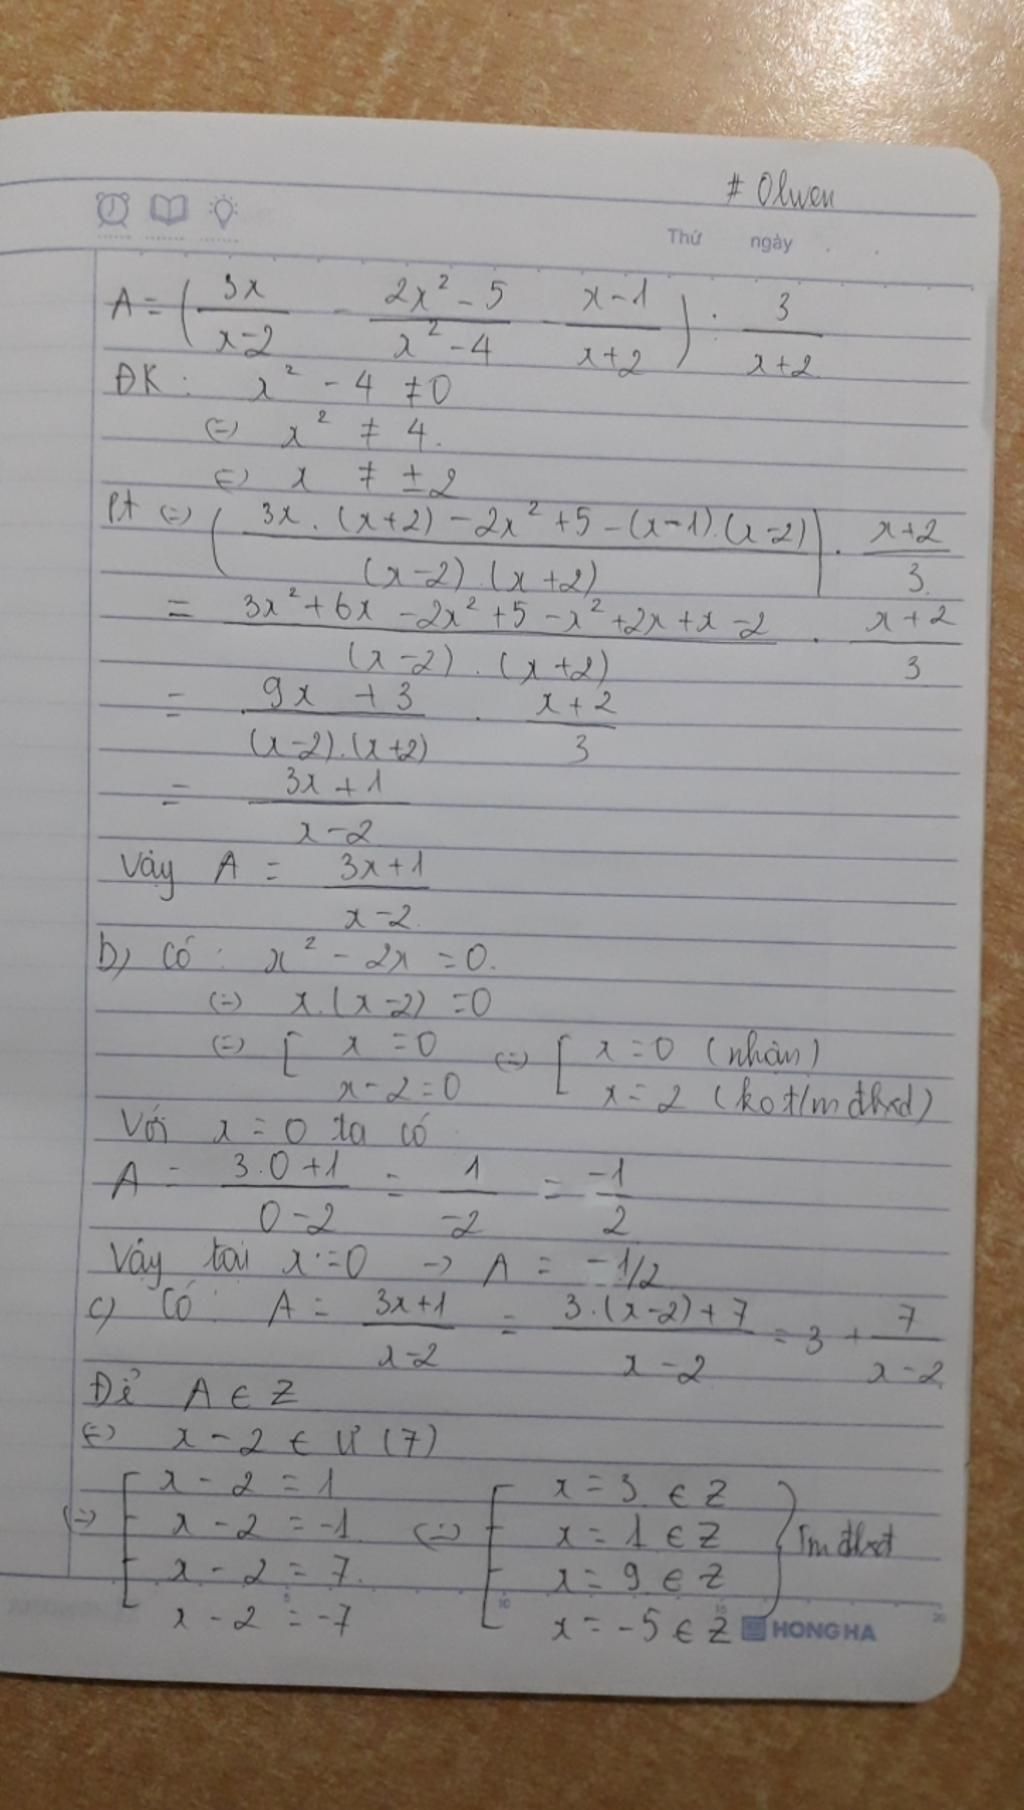 # Olwen
Thứ ngày
A = (3x/(x-2) - (2x² - 5)/(x² - 4) - (x-1)/(x+2)) : 3/(x+2)
ĐK: x² - 4 ≠ 0
(=) x² ≠ 4.
(=) x ≠ ±2
Pt (=) ((3x.(x+2) - 2x² + 5 - (x-1).(x-2))/((x-2).(x+2))) . (x+2)/3
= (3x² + 6x - 2x² + 5 - x² + 2x + x - 2)/((x-2).(x+2)) . (x+2)/3
= (9x + 3)/((x-2).(x+2)) . (x+2)/3
= (3x+1)/(x-2)
Vậy A = (3x+1)/(x-2)
b) Có: x² - 2x = 0.
(=) x.(x-2) = 0
(=) [ x = 0 (=) [ x = 0 (nhận)
x-2 = 0 x = 2 (ko t/m đkxđ)
Với x = 0 ta có
A = (3.0+1)/(0-2) = 1/-2 = -1/2
Vậy tại x = 0 → A = -1/2
c) Có: A = (3x+1)/(x-2) = (3.(x-2)+7)/(x-2) = 3 + 7/(x-2)
Để A ∈ Z
(=) x-2 ∈ Ư(7)
x-2 = 1 x = 3 ∈ Z
(=) x-2 = -1 (=) x = 1 ∈ Z Tm đkxđ
x-2 = 7. x = 9 ∈ Z
x-2 = -7 x = -5 ∈ Z
HONG HA